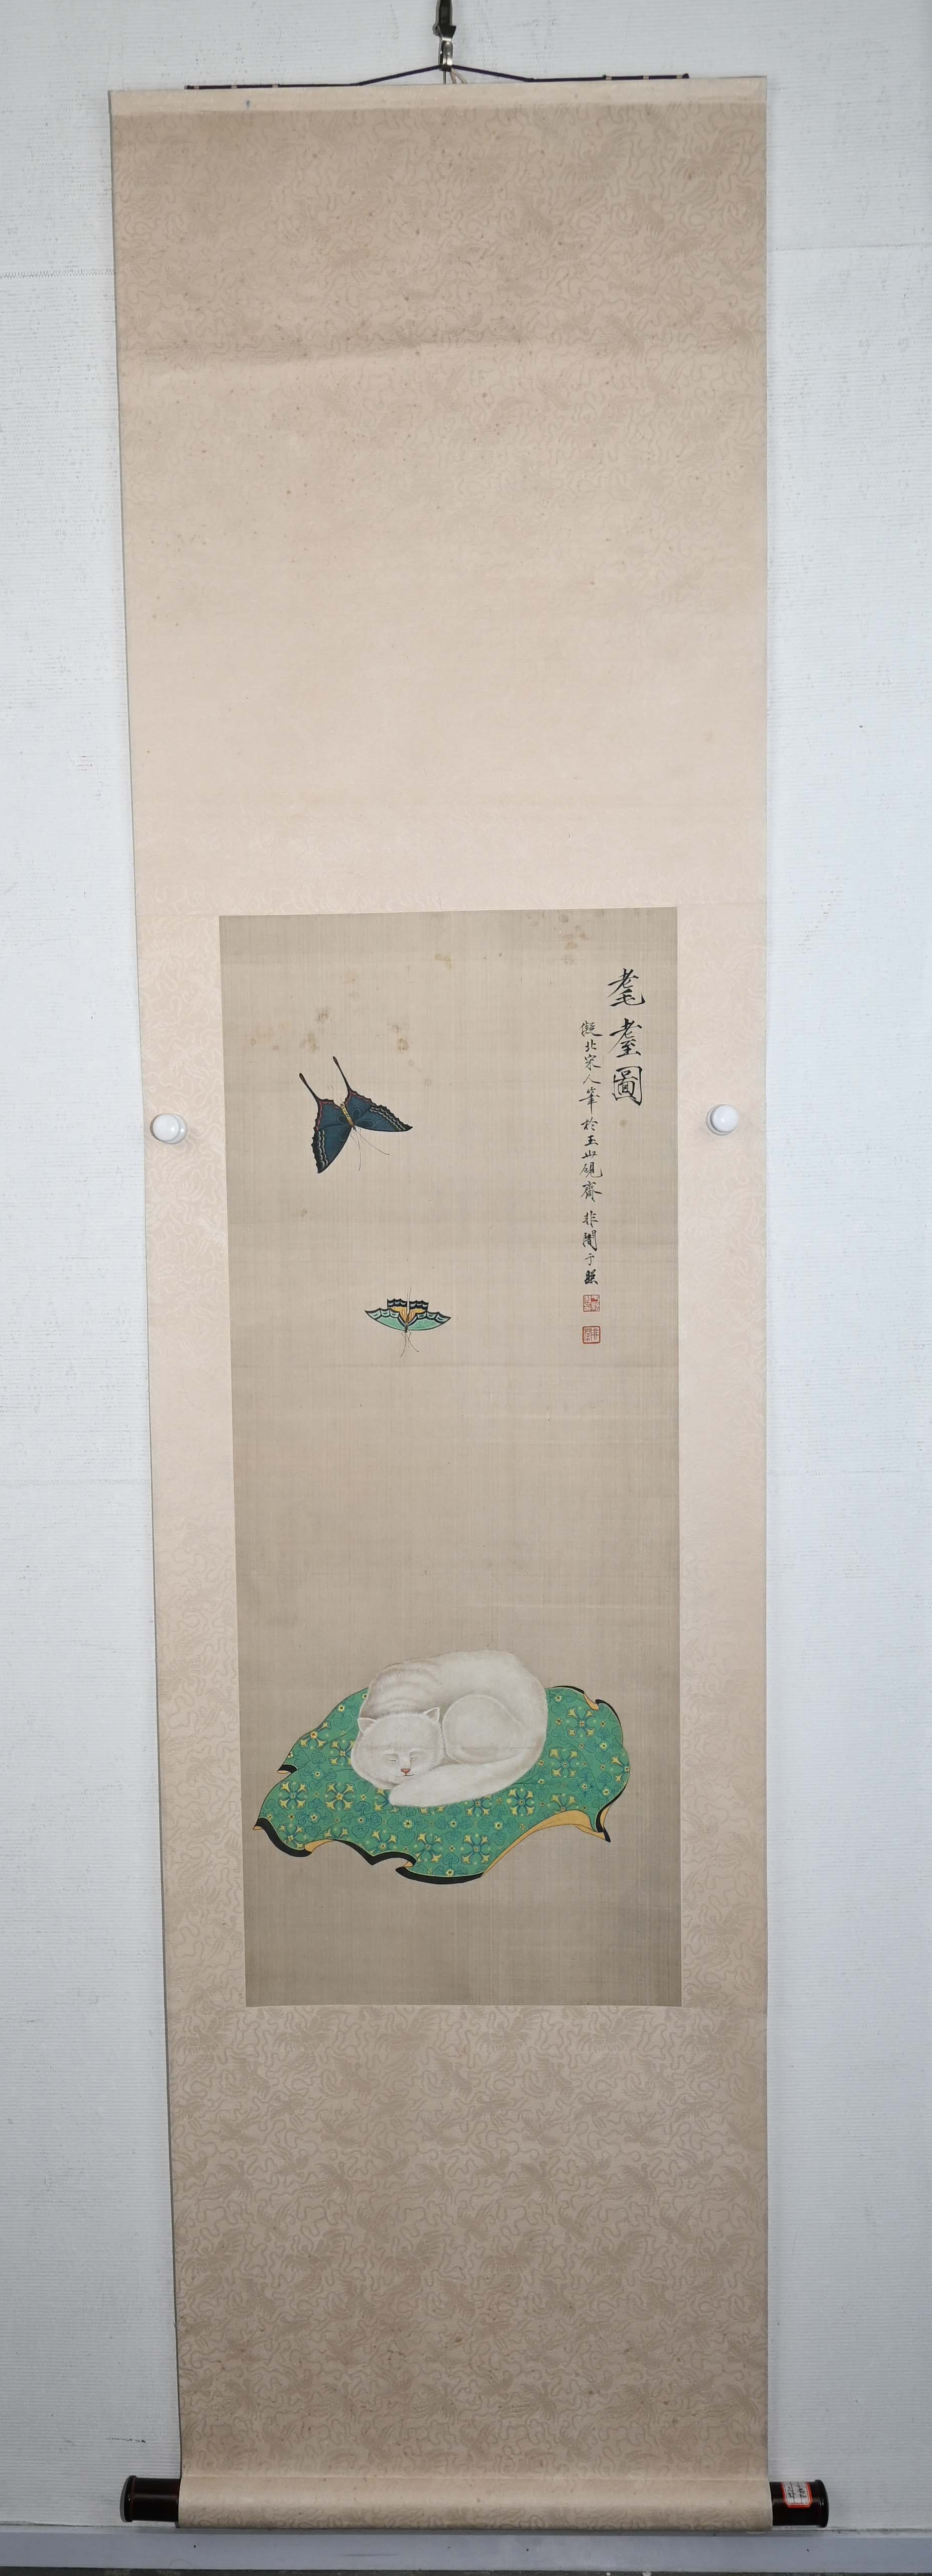 耄耋圖
擬北宋人筆於玉山硯齋非闇于照